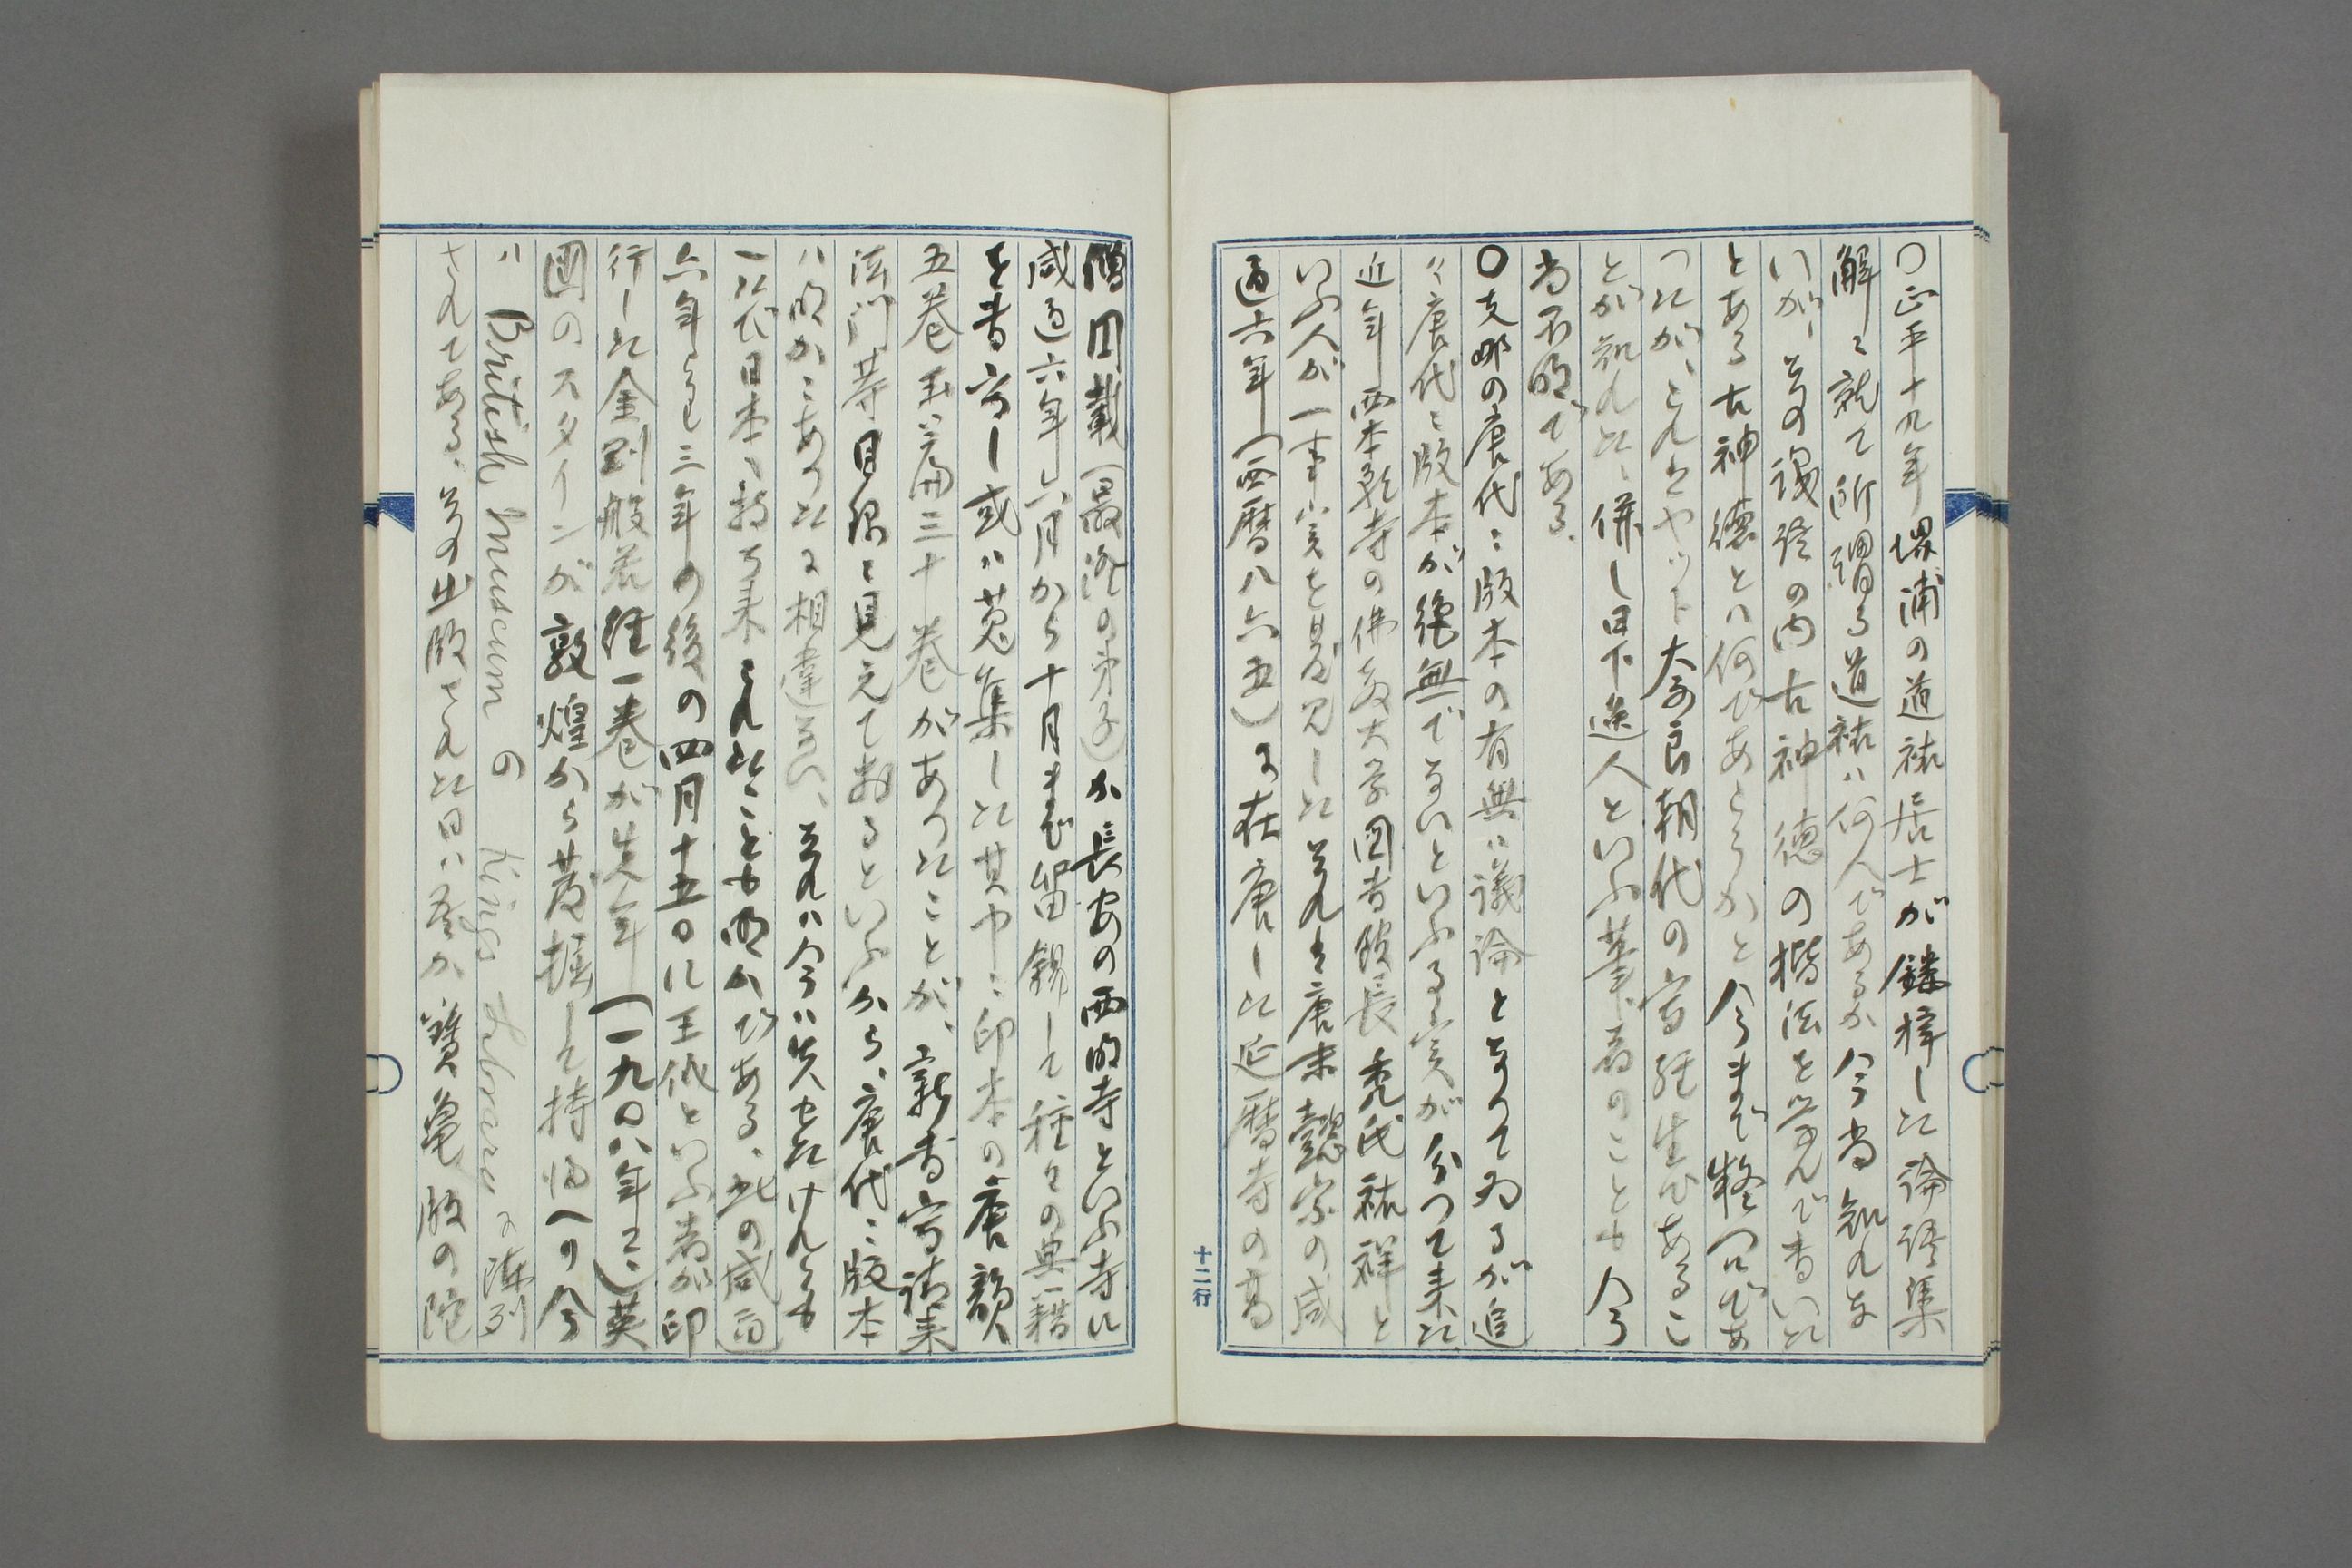 〇正平十九年堺浦の道祐居士が鏤梓した論語集
解に就て所謂る道祐ハ何人であるか今尚知れな
いが、その談珍の内古神徳の楷法を学んで書いた
とある古神徳とハ何であらうかと今まで疑つてあ
つたが、これもやツト大奈良朝代の写経生であるこ
とが知れた、併し日下逸人といふ筆者のことも今
尚不明である、
〇支那の唐代に版本の有無ハ議論となつてゐるが追
々唐代に版本が絶無でないといふ事実が分つて来た
近年西本願寺の佛教大学図書館長禿氏祐祥と
いふ人が一事実を発見したそれは唐末懿宗の咸
通六年（西暦八六五）に在唐した延暦寺の高
僧円載（最澄の弟子）が長安の西明寺といふ寺に
咸通六年六月から十月まで留錫して種々の典籍
を書写し或ハ蒐集した其中に印本の唐韻
五巻玉篇三十巻があつたことが、新書写請来
法門等目録に見えておるといふから、唐代に版本
ハ明かにあつたに相違ない、それハ今ハ失せたけれども
一たび日本に持ち来されたことも明かである、此の咸通
六年より三年の後の四月十五日に王代といふ者が印
行した金剛般若経一巻が先年（一九〇八年に）英
国のスタインが敦煌から発掘して持帰へり今
ハ British Museum の Kings Library に陳列
されてある、その出版された日ハ吾が寶亀版の陀
十二行